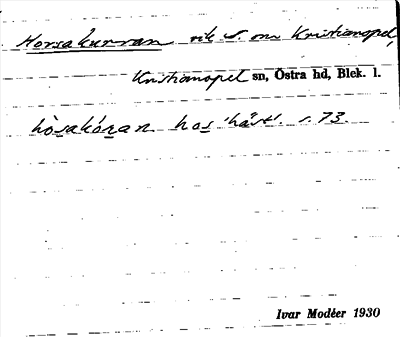 Horsakurran vik S. om Kristianopel,
Kristianopel sn, Östra hd, Blek. l.
hòsakóran hos 'häst'. s. 73.
Ivar Modéer 1930